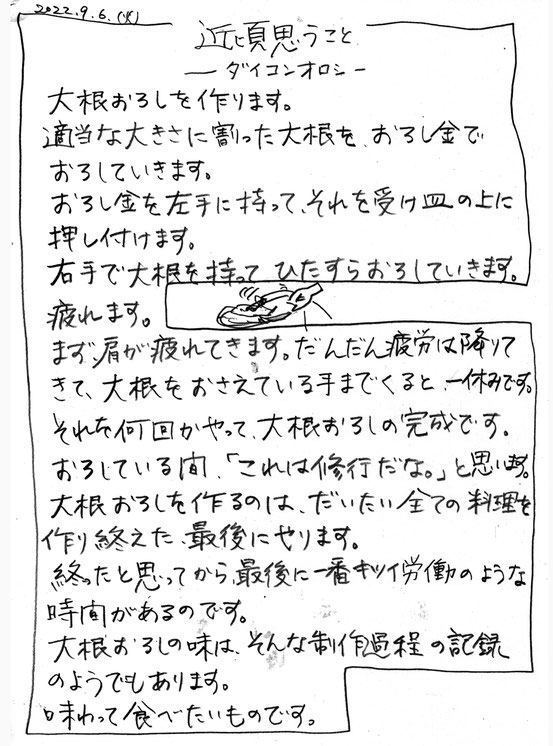 2022.9.6.(火)
近頃思うこと
―ダイコンオロシ―
大根おろしを作ります。
適当な大きさに割った大根を、おろし金で
おろしていきます。
おろし金を左手に持って、それを受け皿の上に
押し付けます。
右手で大根を持って ひたすらおろしていきます。
疲れます。
まず、肩が疲れてきます。だんだん疲労は降りて
きて、大根をおさえている手までくると、一休みです。
それを何回かやって、大根おろしの完成です。
おろしている間、「これは修行だな。」と思います。
大根おろしを作るのは、だいたい全ての料理を
作り終えた、最後にやります。
終ったと思ってから、最後に一番キツイ労働のような
時間があるのです。
大根おろしの味は、そんな制作過程の記録
のようでもあります。
味わって食べたいものです。